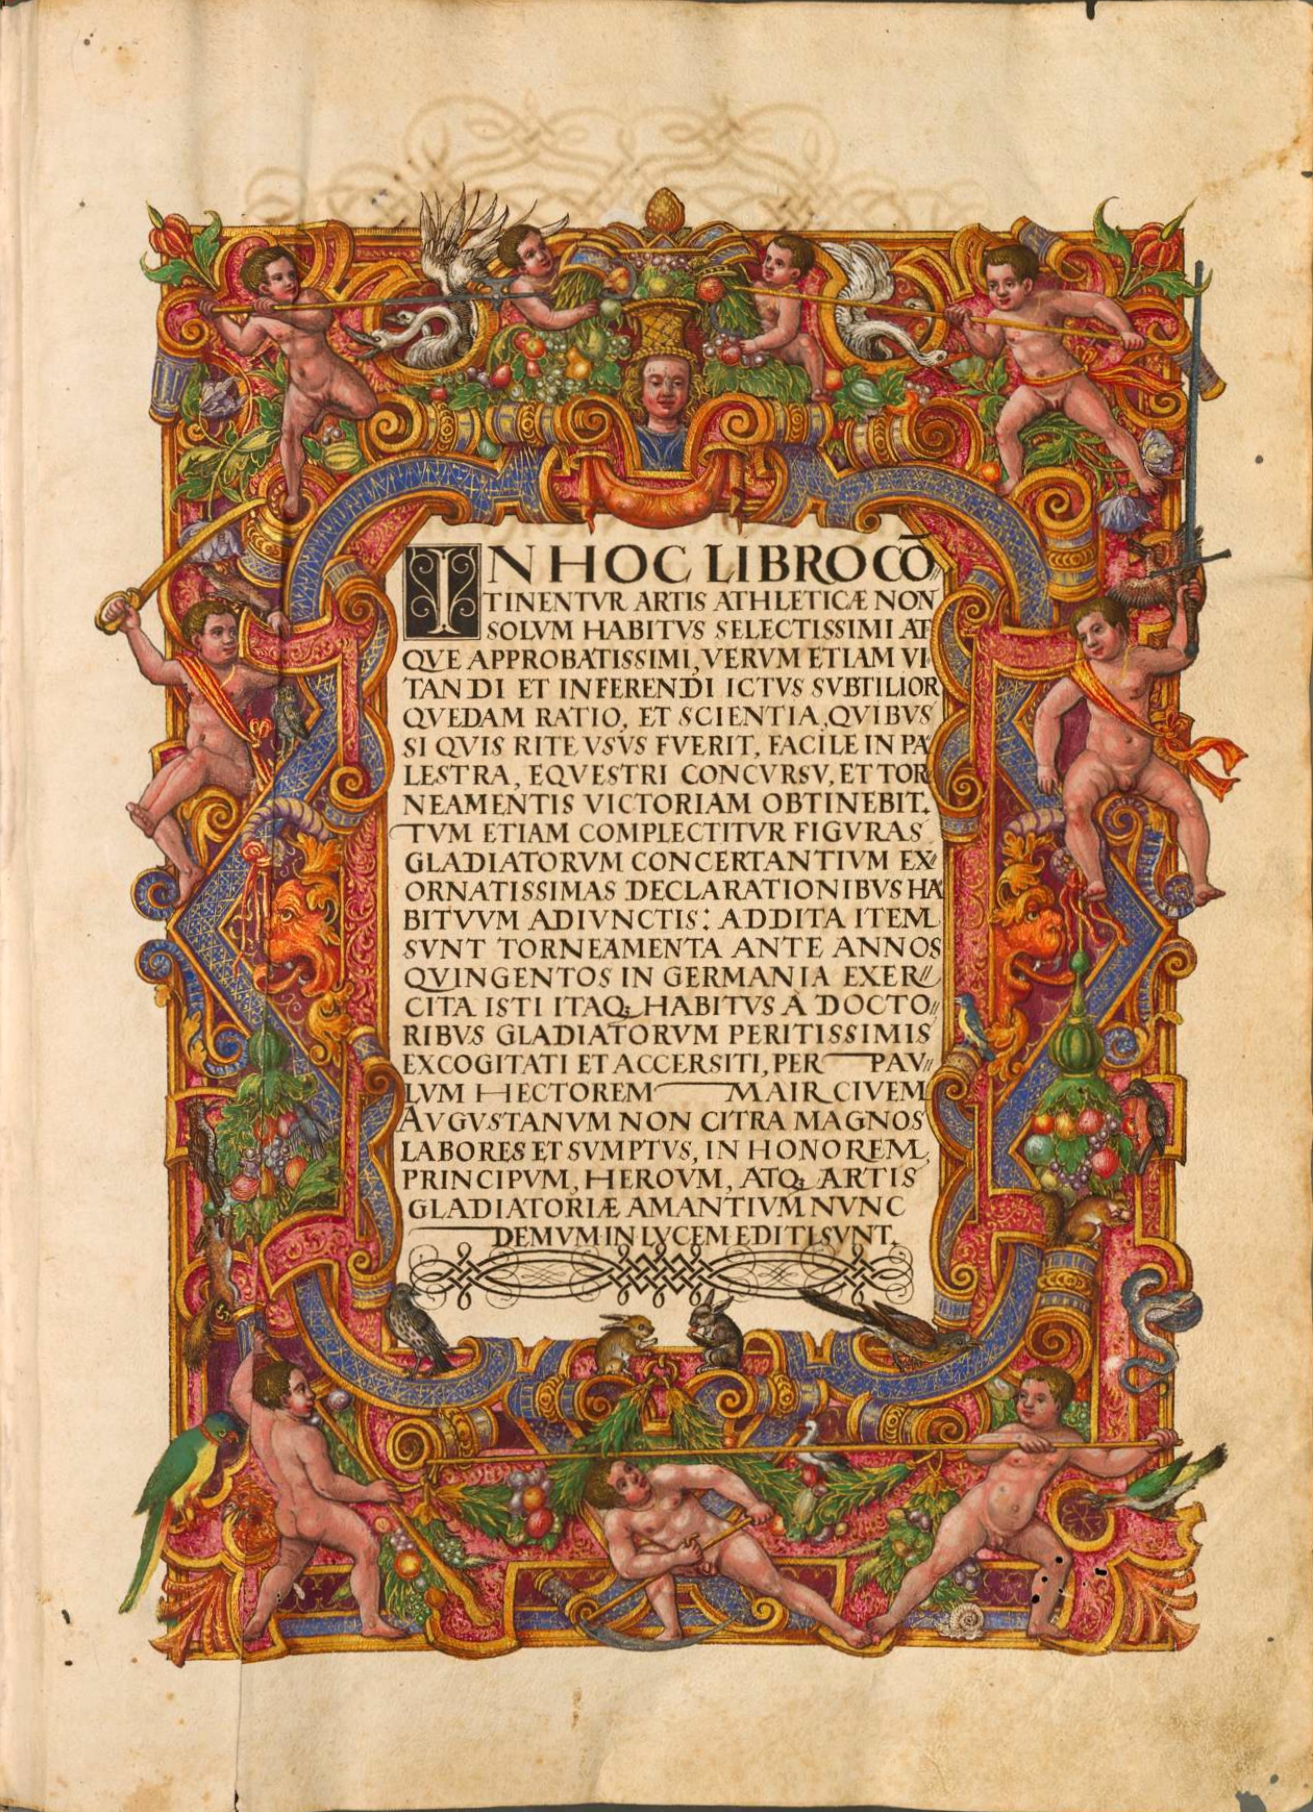 IN HOC LIBRO CŌ//
TINENTVR ARTIS ATHLETICÆ NON
SOLVM HABITVS SELECTISSIMI AT
QVE APPROBATISSIMI, VERVM ETIAM VI-
TANDI ET INFERENDI ICTVS SVBTILIOR
QVEDAM RATIO, ET SCIENTIA, QVIBVS
SI QVIS RITE VSVS FVERIT, FACILE IN PA
LESTRA, EQVESTRI CONCVRSV, ET TOR
NEAMENTIS VICTORIAM OBTINEBIT.
TVM ETIAM COMPLECTITVR FIGVRAS
GLADIATORVM CONCERTANTIVM EX//
ORNATISSIMAS DECLARATIONIBVS HA
BITVVM ADIVNCTIS: ADDITA ITEM
SVNT TORNEAMENTA ANTE ANNOS
QVINGENTOS IN GERMANIA EXER//
CITA ISTI ITAQ; HABITVS À DOCTO//
RIBVS GLADIATORVM PERITISSIMIS
EXCOGITATI ET ACCERSITI, PER PAV//
LVM HECTOREM MAIR CIVEM
AVGVSTANVM NON CITRA MAGNOS
LABORES ET SVMPTVS, IN HONOREM
PRINCIPVM, HEROVM, ATQ; ARTIS
GLADIATORIÆ AMANTIVM NVNC
DEMVM IN LVCEM EDITI SVNT.